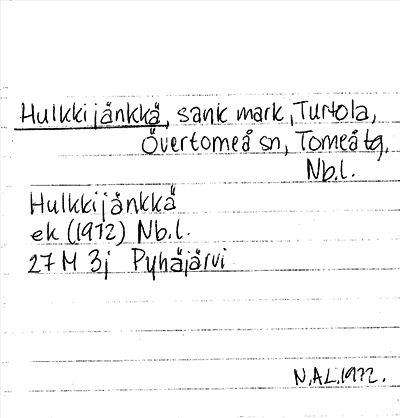 Hulkkijänkkä, sank mark, Turtola,
Övertorneå sn, Torneå tg,
Nb.l.
Hulkkijänkkä
ek (1972) Nb.l.
27 M 3j Pyhäjärvi
N.A.L.1972.